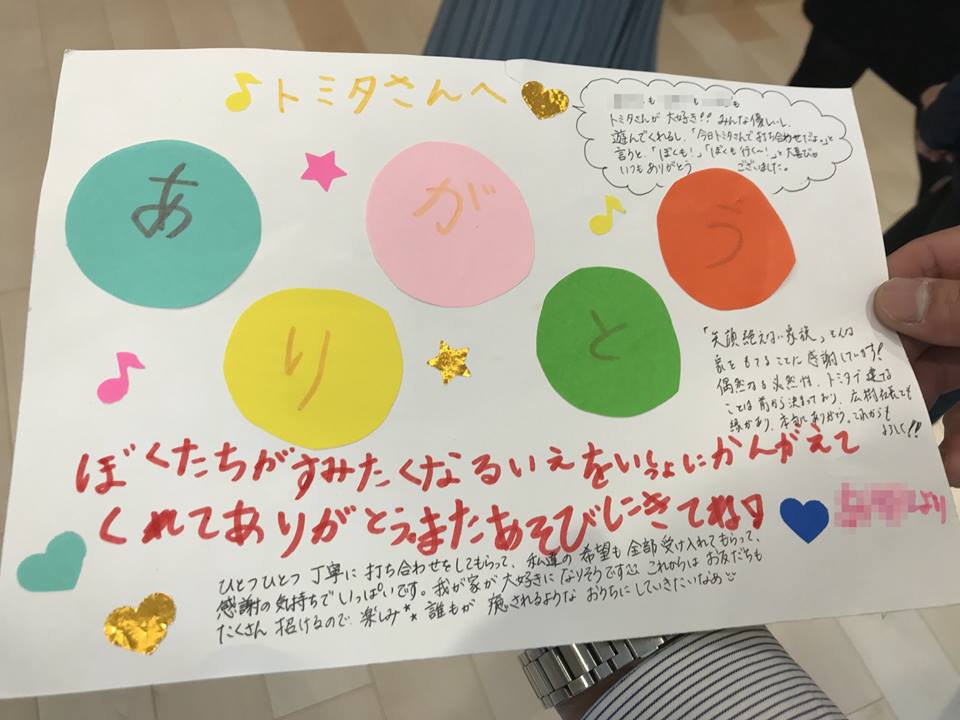 トミタさんへ
も も も
トミタさんが 大好き!! みんな優しいし、
遊んでくれるし、「今日トミタさんで打ち合わせだよ。」と
言うと、「ぼくも!」「ぼくも行く〜!」と大喜び
いつもありがとう ございました。
あ が う
り と
「笑顔絶えない家族」
家をもてることに感謝しています!
偶然なる必然性、トミタで建てる
ことは前から決まっており、広樹社長とも
縁があり、本当にありがとう。これからも
よろしく!!
ぼくたちがすみたくなるいえをいっしょにかんがえて
くれてありがとう。またあそびにきてね
より
ひとつひとつ 丁寧に 打ち合わせをしてもらって、私達の 希望も 全部受け入れてもらって、
感謝の気持ちで いっぱいです。我が家が 大好きに なりそうです これからは お友だちも
たくさん 招けるので 楽しみ 誰もが 癒されるような おうちに していきたいなぁ